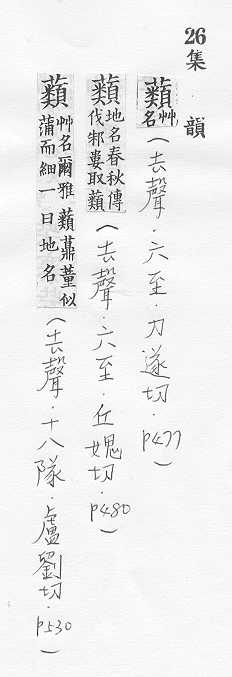 26 集 韻
蘱 艸名（去聲．六至．力遂切．p477）
蘱 地名春秋傳伐邾婁取蘱（去聲．六至．丘媿切．p480）
蘱 艸名爾雅蘱薡董似蒲而細一曰地名（去聲．十八隊．盧對切．p530）